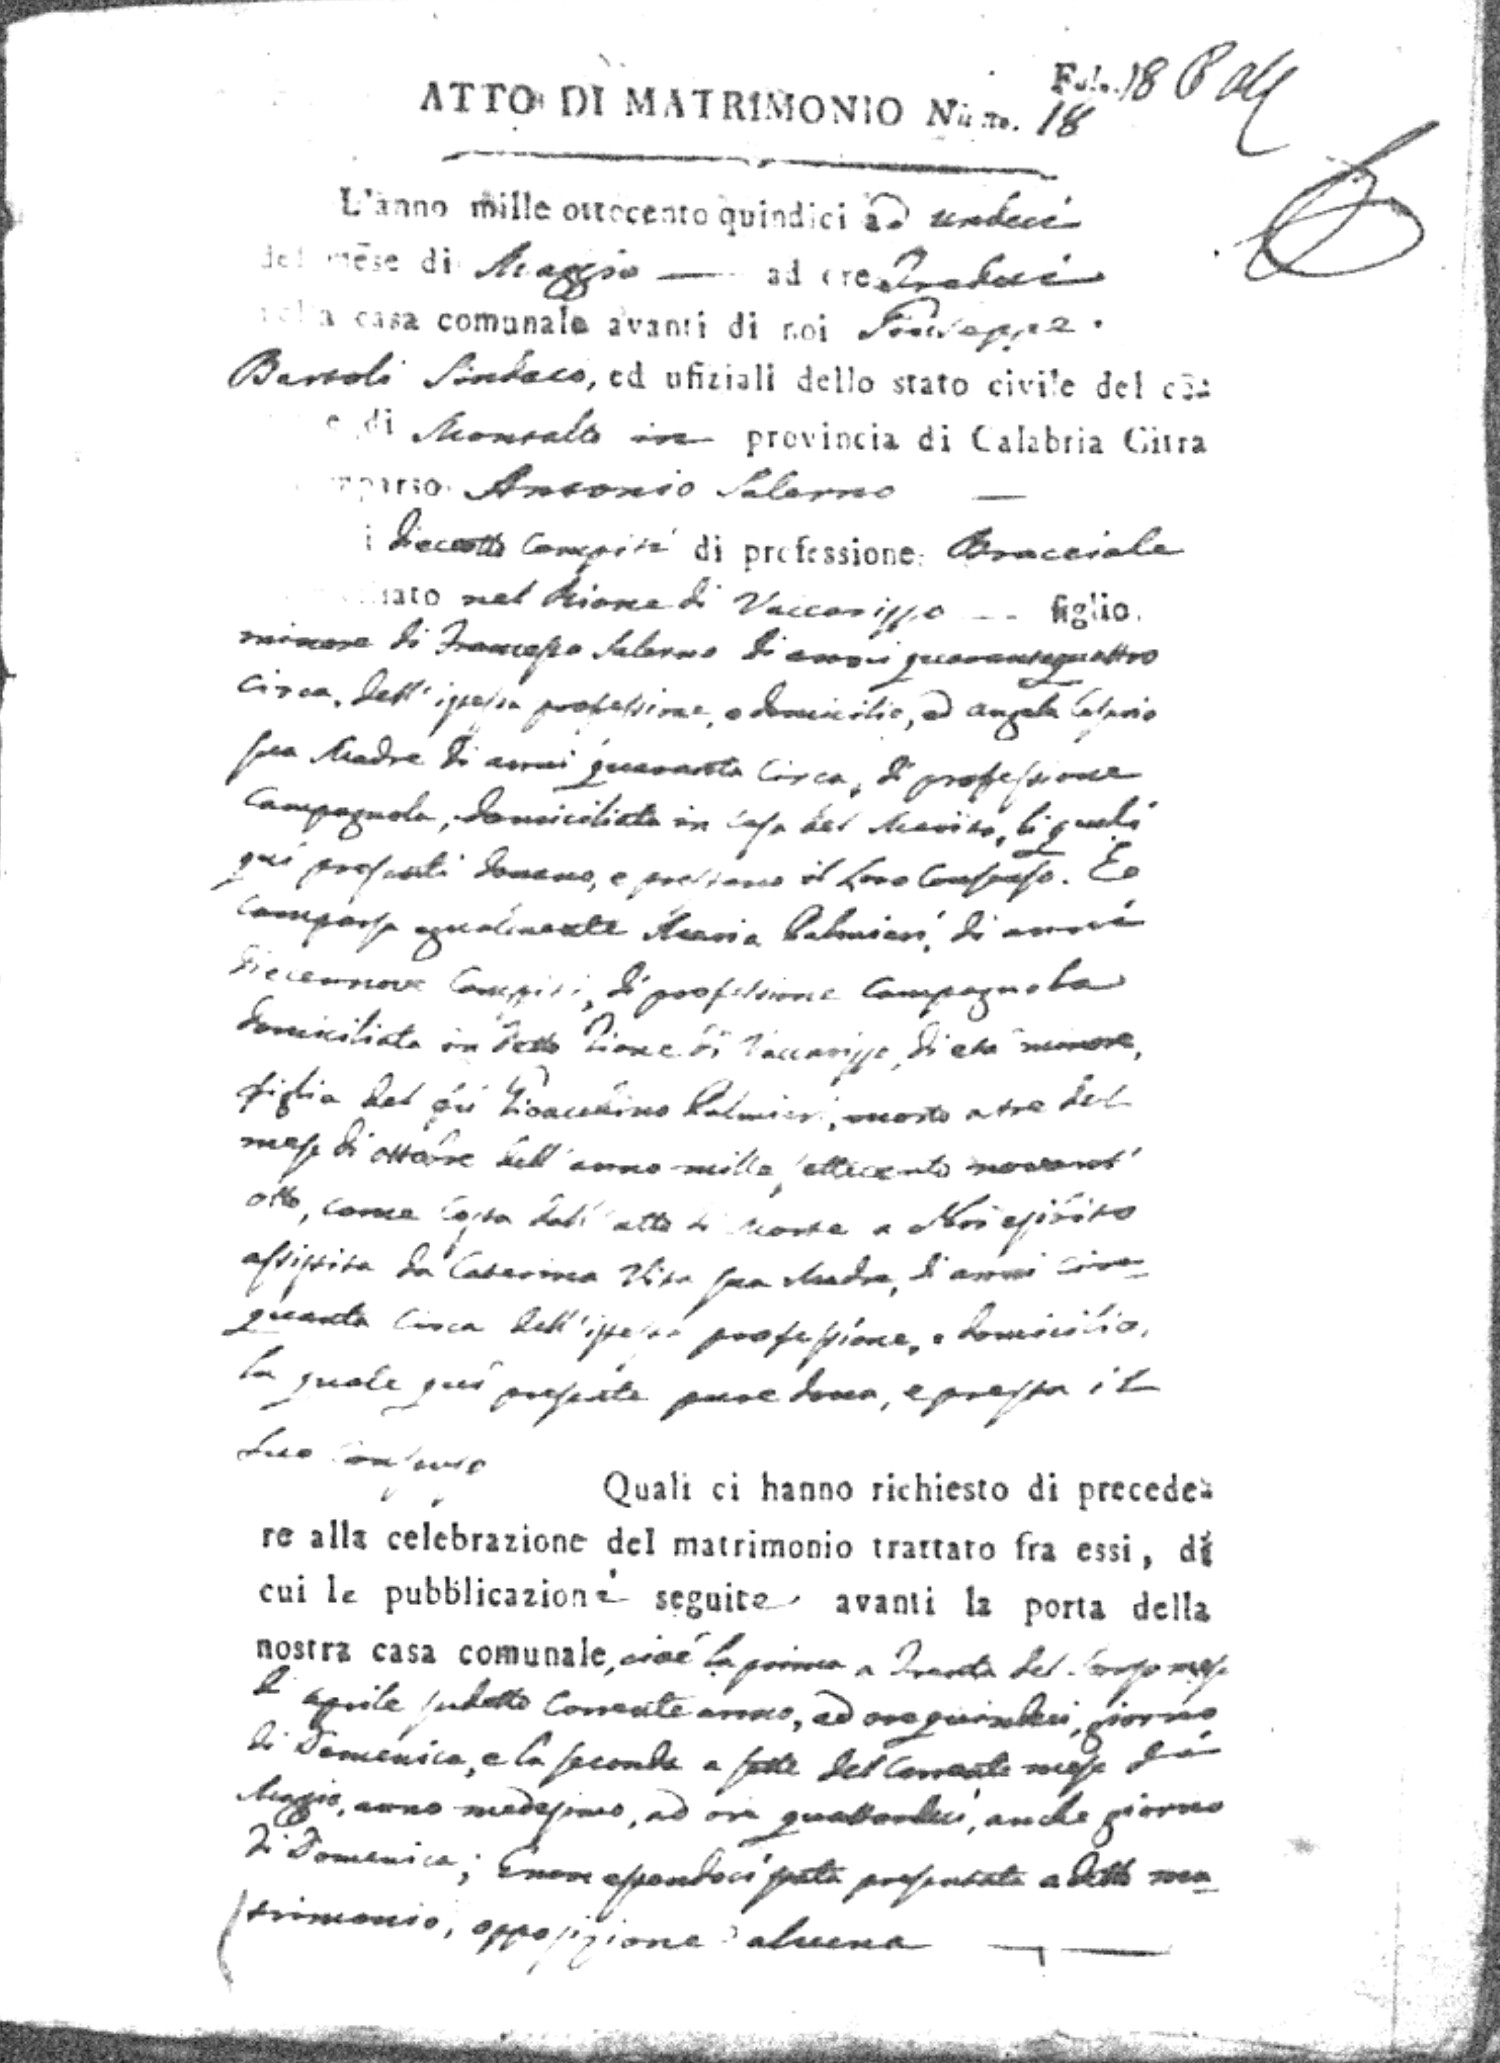 Folo. 18
ATTO DI MATRIMONIO Num. 18
L'anno mille ottocento quindici ad undeci
del mese di Maggio — ad ore Tredeci
nella casa comunale avanti di noi Giuseppe
Bartoli Sindaco, ed ufiziali dello stato civile del co=
e di Montalto in provincia di Calabria Citra
mparso Antonio Salerno —
i dieceotto Compiti di professione Bracciale
iliato nel Rione di Vaccarizzo — figlio
minore di Francesco Salerno di anni quarantaquattro
Circa, dell'istessa professione, e domicilio, ed Angela
sua Madre di anni quaranta Circa, di professione
Campagnola, domiciliata in Casa del Marito, li quali
quì presenti donano, e prestano il loro Consenso. E
Comparsa egualmente Maria Palmieri, di anni
diecennove Compiti, di professione Campagnola
domiciliata in detto Rione di Vaccarizzo, di età minore,
figlia del qu Gioacchino Palmieri, morto a tre del
mese di ottobre dell'anno mille settecento novant'
otto, come Costa dall'atto di Morte a Noi esibito
assistita da Caterina Vita sua Madre, di anni cin=
quanta Circa dell'istessa professione, e domicilio,
la quale quì presente pure dona, e presta il
suo Consenso
Quali ci hanno richiesto di precede=
re alla celebrazione del matrimonio trattato fra essi, di
cui le pubblicazioni seguite avanti la porta della
nostra casa comunale, cioè la prima a Trenta del scorso mese
di Aprile sudetto Corrente anno, ad ore quindeci, giorno
di Domenica, e la seconda a sette del Corrente mese di
Maggio, anno medesimo, ad ore quattordeci, anche giorno
di Domenica; E non essendoci stata presentata a detto ma=
trimonio, opposizione alcuna —